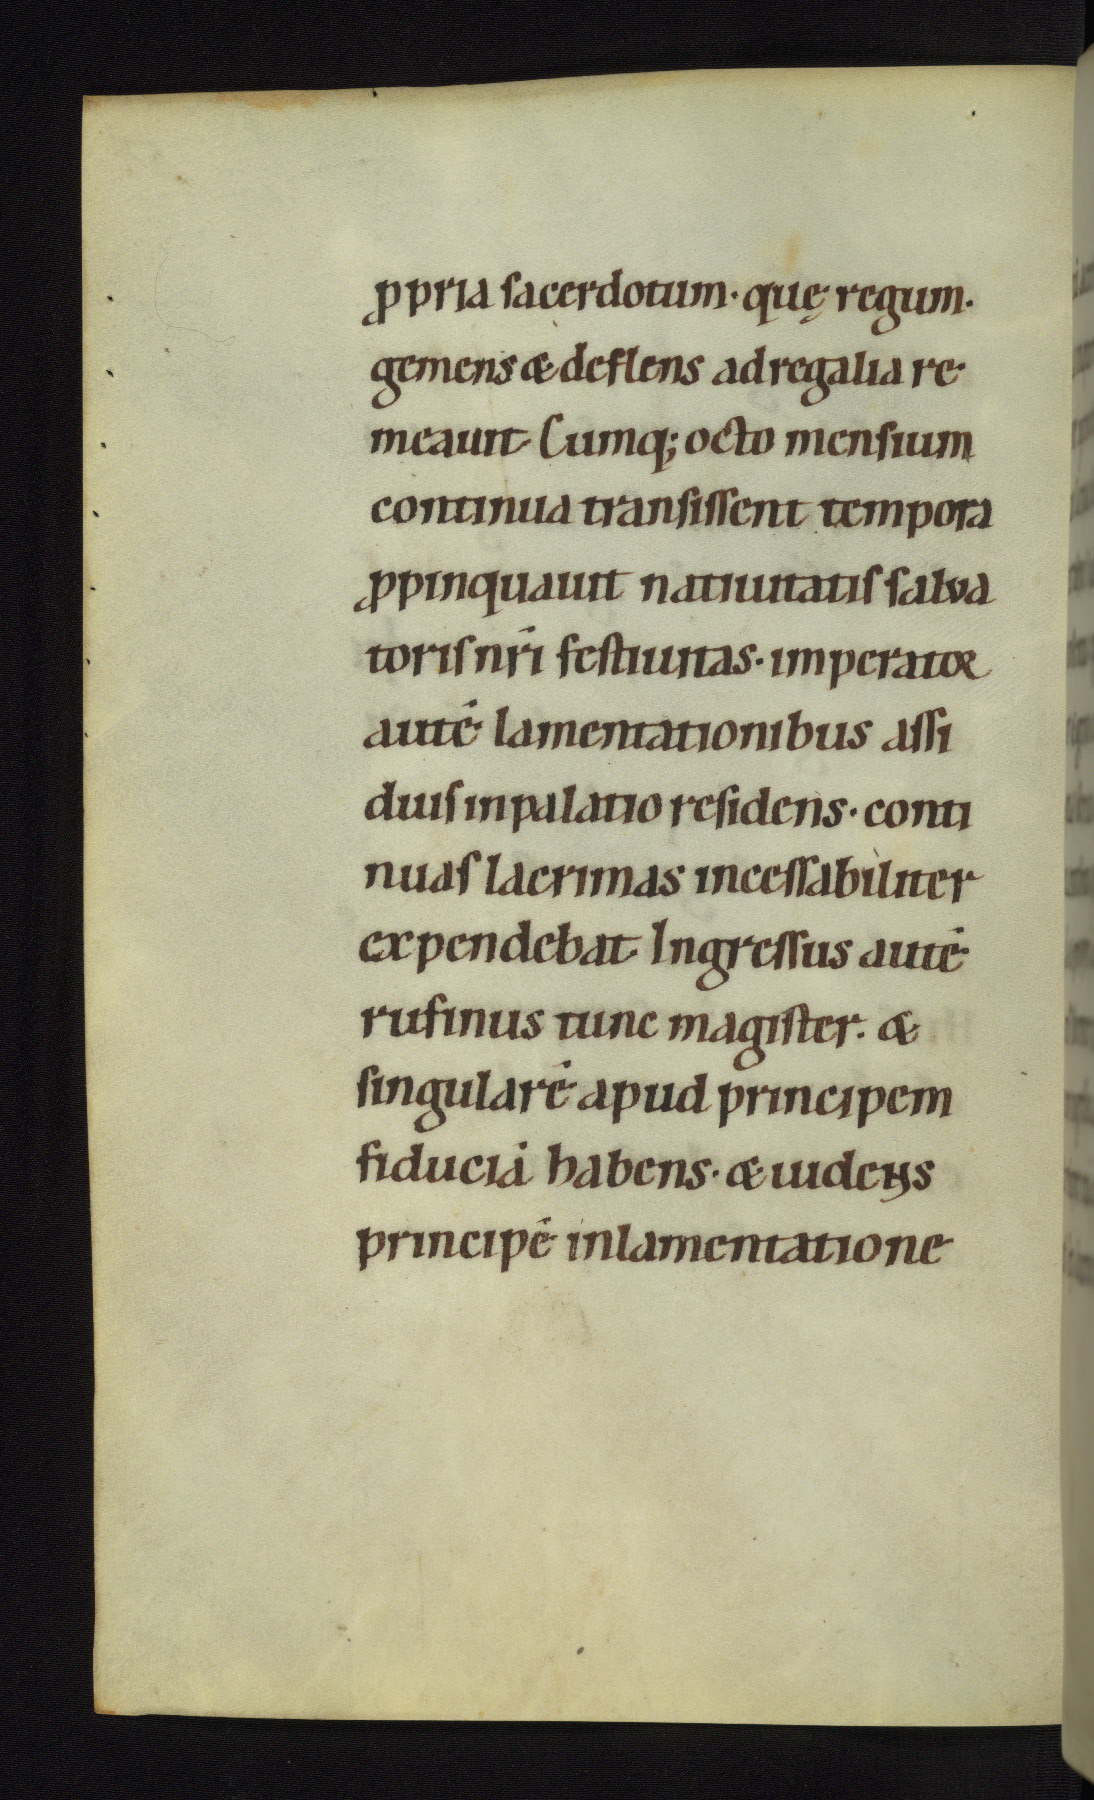 ꝓpria sacerdotum· quę regum·
gemens & deflens ad regalia re
meauit Cumq; octo mensium
continua transissent tempora
ꝓpinquauit natiuitatis salva
toris nr̄i festiuitas· imperator
autē lamentationibus assi
duis in palatio residens· conti
nuas lacrimas incessabiliter
expendebat Ingressus autē
rufinus tunc magister· &
singularē apud principem
fiduciā habens· & uidens
principē in lamentatione